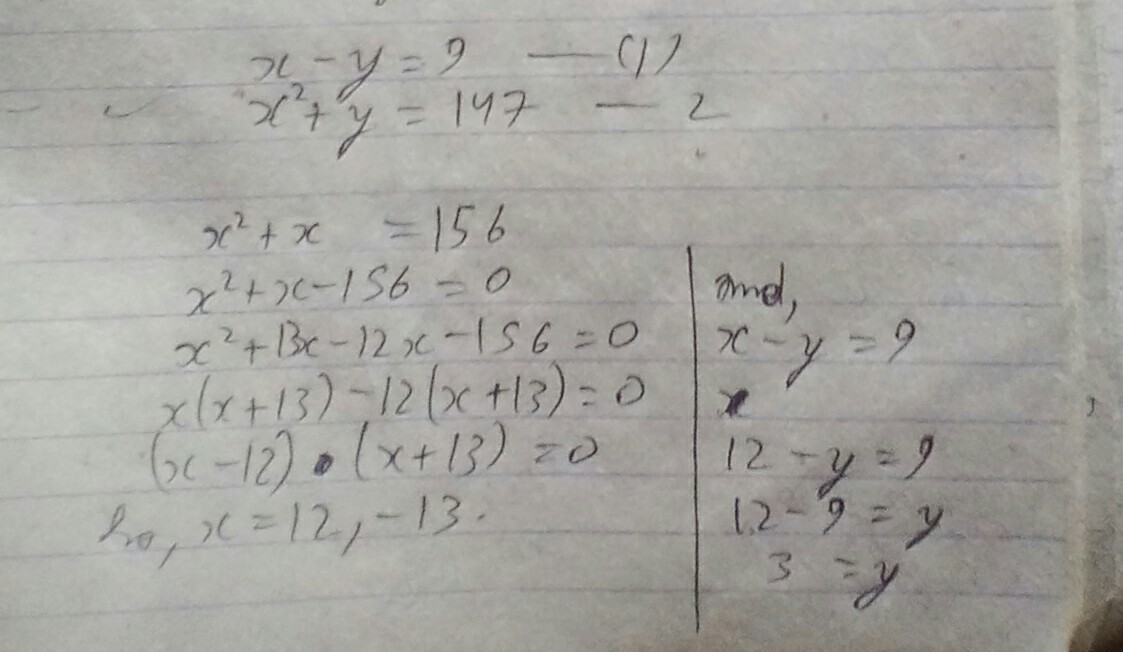 x - y = 9 — (1)
x² + y = 147 — 2
x² + x = 156
x² + x - 156 = 0
x² + 13x - 12x - 156 = 0
x(x + 13) - 12(x + 13) = 0
(x - 12) • (x + 13) = 0
So, x = 12, -13.
and,
x - y = 9
x
12 - y = 9
12 - 9 = y
3 = y